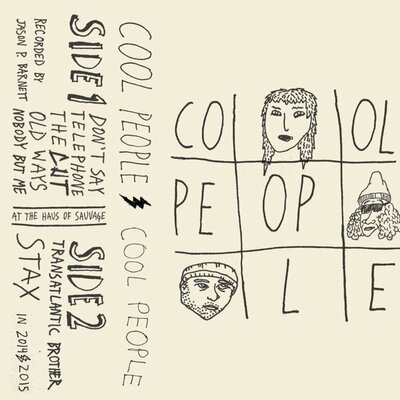 COOL PEOPLE COOL PEOPLE
SIDE 1
DON'T SAY
TELEPHONE
THE CUT
OLD WAYS
NOBODY BUT ME
RECORDED BY
JASON P. BARNETT
AT THE HAUS OF SAUVAGE
SIDE 2
TRANSATLANTIC BROTHER
STAX
IN 2014 & 2015
CO OL
PE OP
L E